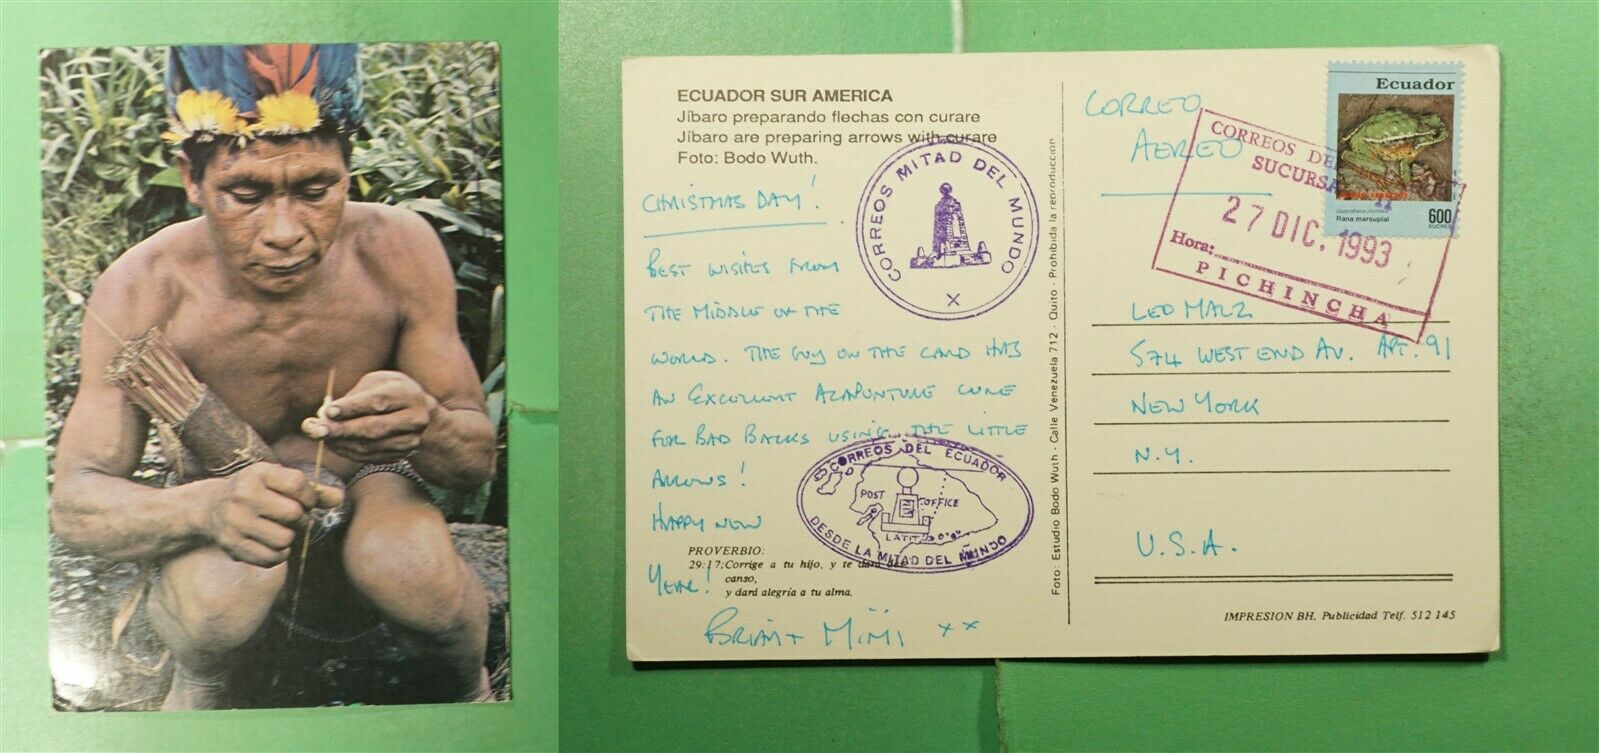 ECUADOR SUR AMERICA
Jíbaro preparando flechas con curare
Jíbaro are preparing arrows with curare
Foto: Bodo Wuth.
CHRISTMAS DAY!
BEST WISHES FROM
THE MIDDLE OF THE
WORLD. THE GUY ON THE CARD HAS
AN EXCELLENT ACAPUNTURE CURE
FOR BAD BACKS USING THE LITTLE
ARROWS!
HAPPY NEW
YEAR!
BRIAN + MIMI xx
PROVERBIO:
29:17; Corrige a tu hijo, y te dará des-
canso,
y dará alegría a tu alma.
CORREOS MITAD DEL MUNDO
X
CORREOS DEL ECUADOR
POST OFFICE
LATITUD 0°0'0"
DESDE LA MITAD DEL MUNDO
Foto: Estudio Bodo Wuth - Calle Venezuela 712 - Quito - Prohibida la reproduccion
CORREO
AEREO
CORREOS DEL
SUCURSAL
27 DIC. 1993
Hora:
PICHINCHA
Ecuador
Rana marsupial
600
SUCRES
LEO MALZ
574 WEST END AV. APT. 91
NEW YORK
N.Y.
U.S.A.
IMPRESION BH. Publicidad Telf. 512 145